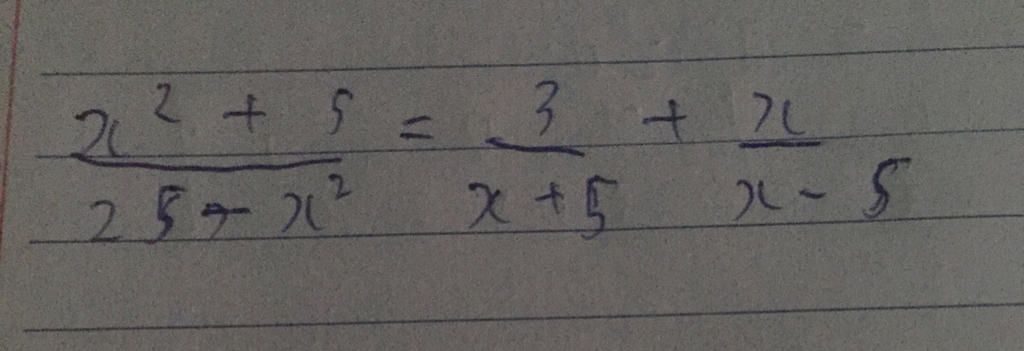 x² + 5 / 25 - x² = 3 / x + 5 + x / x - 5